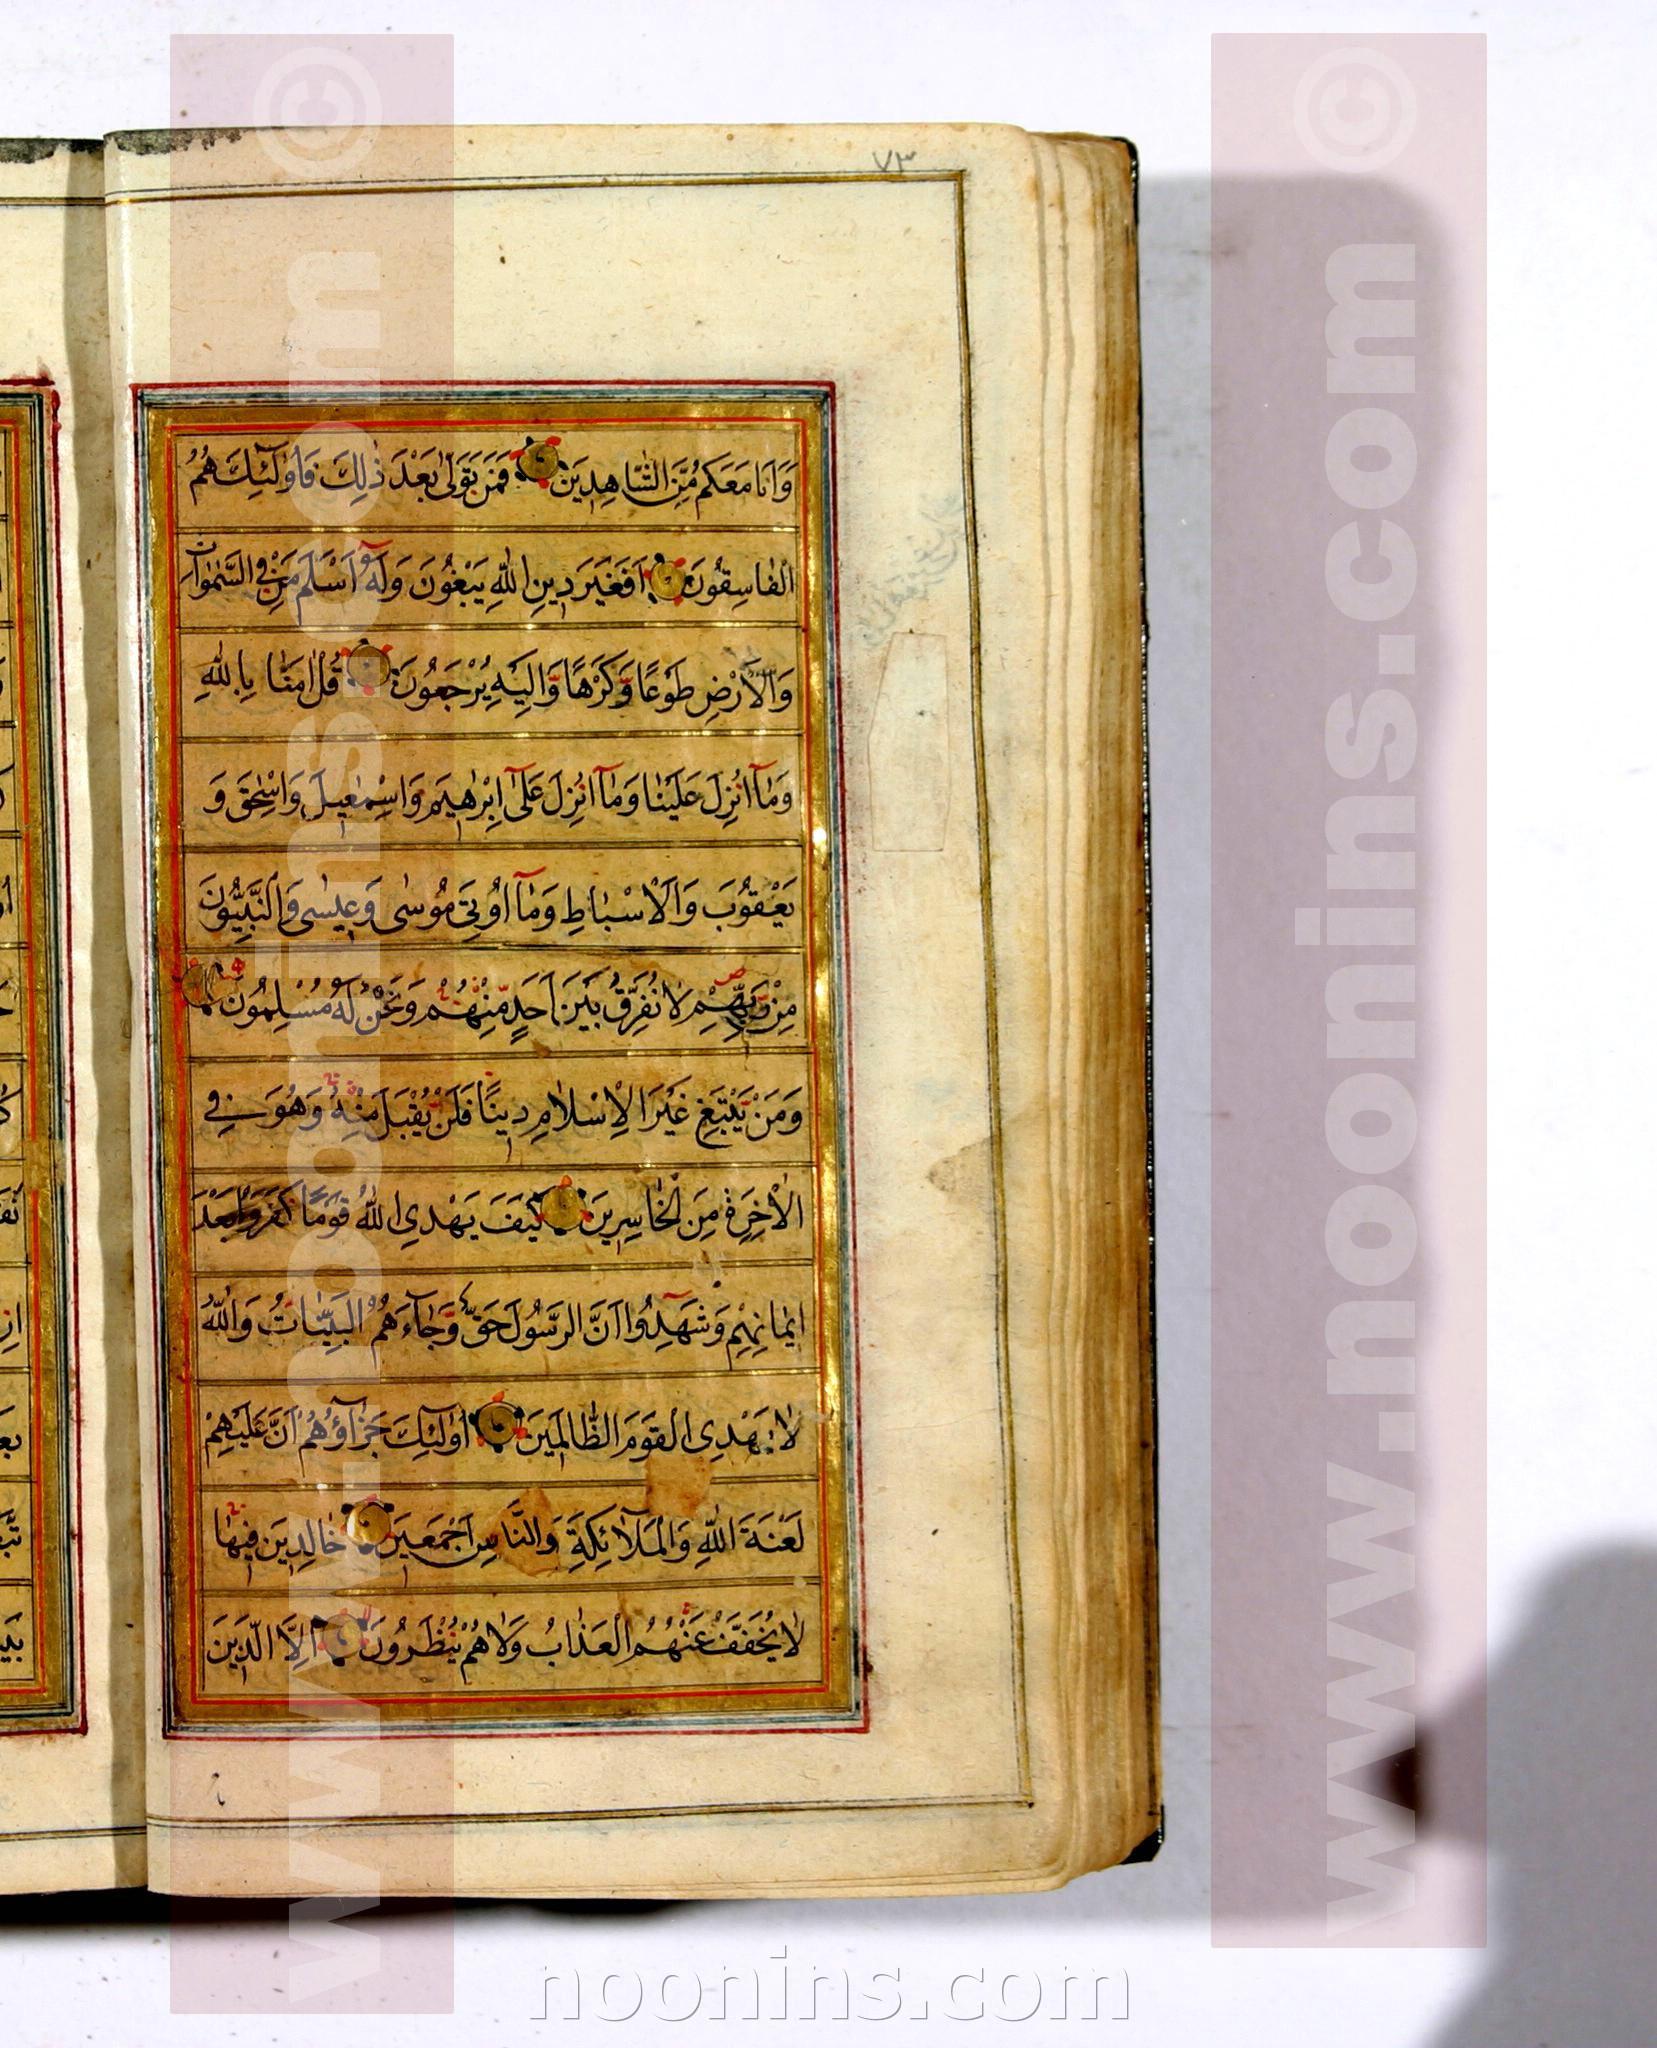 ٧٣
وَاَنَا مَعَكُمْ مِنَ الشَّاهِدِينَ فَمَنْ تَوَلّٰى بَعْدَ ذٰلِكَ فَاُولٰٓئِكَ هُمُ
الْفَاسِقُونَ اَفَغَيْرَ دِينِ اللّٰهِ يَبْغُونَ وَلَهُٓ اَسْلَمَ مَنْ فِي السَّمٰوَاتِ
وَالْاَرْضِ طَوْعًا وَّكَرْهًا وَّاِلَيْهِ يُرْجَعُونَ قُلْ اٰمَنَّا بِاللّٰهِ
وَمَآ اُنْزِلَ عَلَيْنَا وَمَآ اُنْزِلَ عَلٰٓى اِبْرٰهِيمَ وَاِسْمٰعِيلَ وَاِسْحٰقَ وَ
يَعْقُوبَ وَالْاَسْبَاطِ وَمَآ اُوتِيَ مُوسٰى وَعِيسٰى وَالنَّبِيُّونَ
مِنْ رَّبِّهِمْ لَا نُفَرِّقُ بَيْنَ اَحَدٍ مِّنْهُمْ وَنَحْنُ لَهُ مُسْلِمُونَ
وَمَنْ يَّبْتَغِ غَيْرَ الْاِسْلَامِ دِينًا فَلَنْ يُّقْبَلَ مِنْهُ وَهُوَ فِي
الْاٰخِرَةِ مِنَ الْخَاسِرِينَ كَيْفَ يَهْدِي اللّٰهُ قَوْمًا كَفَرُوا بَعْدَ
اِيمَانِهِمْ وَشَهِدُٓوا اَنَّ الرَّسُولَ حَقٌّ وَّجَآءَهُمُ الْبَيِّنَاتُ وَاللّٰهُ
لَا يَهْدِي الْقَوْمَ الظَّالِمِينَ اُولٰٓئِكَ جَزَآؤُهُمْ اَنَّ عَلَيْهِمْ
لَعْنَةَ اللّٰهِ وَالْمَلَآئِكَةِ وَالنَّاسِ اَجْمَعِينَ خَالِدِينَ فِيهَا
لَا يُخَفَّفُ عَنْهُمُ الْعَذَابُ وَلَا هُمْ يُنْظَرُونَ اِلَّا الَّذِينَ
www.noonins.com ©
www.noonins.com ©
noonins.com